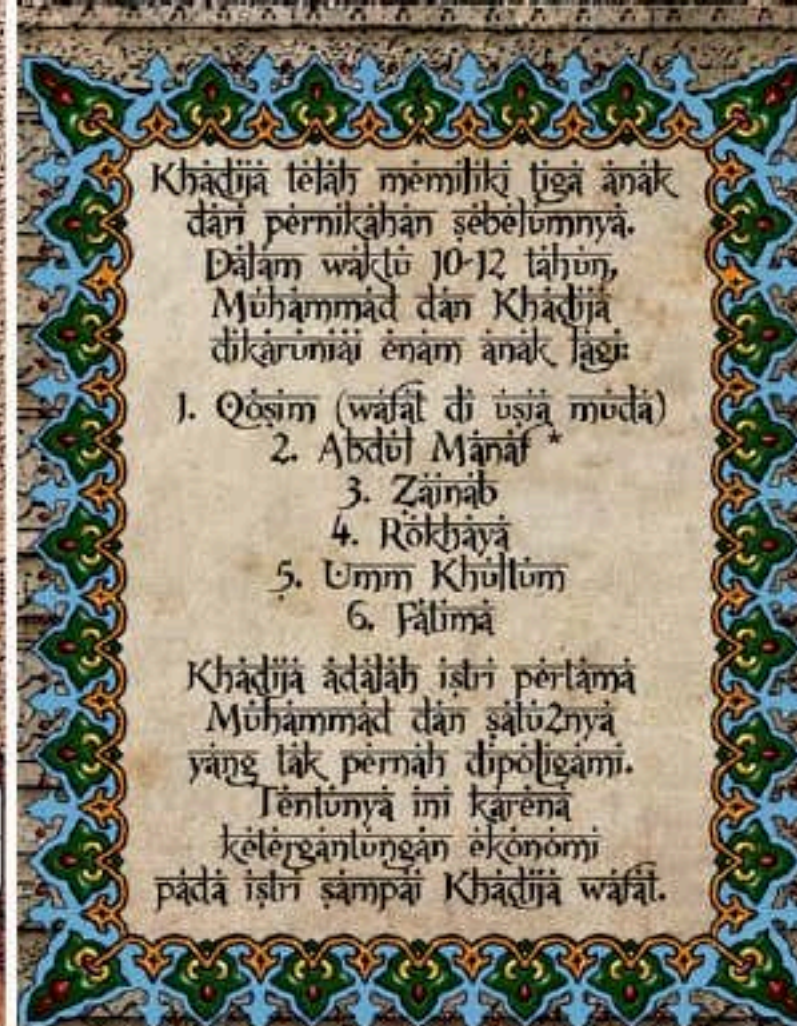 Khadija telah memiliki tiga anak
dari pernikahan sebelumnya.
Dalam waktu 10-12 tahun,
Muhammad dan Khadija
dikaruniai enam anak lagi:
1. Qosim (wafat di usia muda)
2. Abdul Manaf *
3. Zainab
4. Rokhaya
5. Umm Khultum
6. Fatima
Khadija adalah istri pertama
Muhammad dan satu2nya
yang tak pernah dipoligami.
Tentunya ini karena
ketergantungan ekonomi
pada istri sampai Khadija wafat.